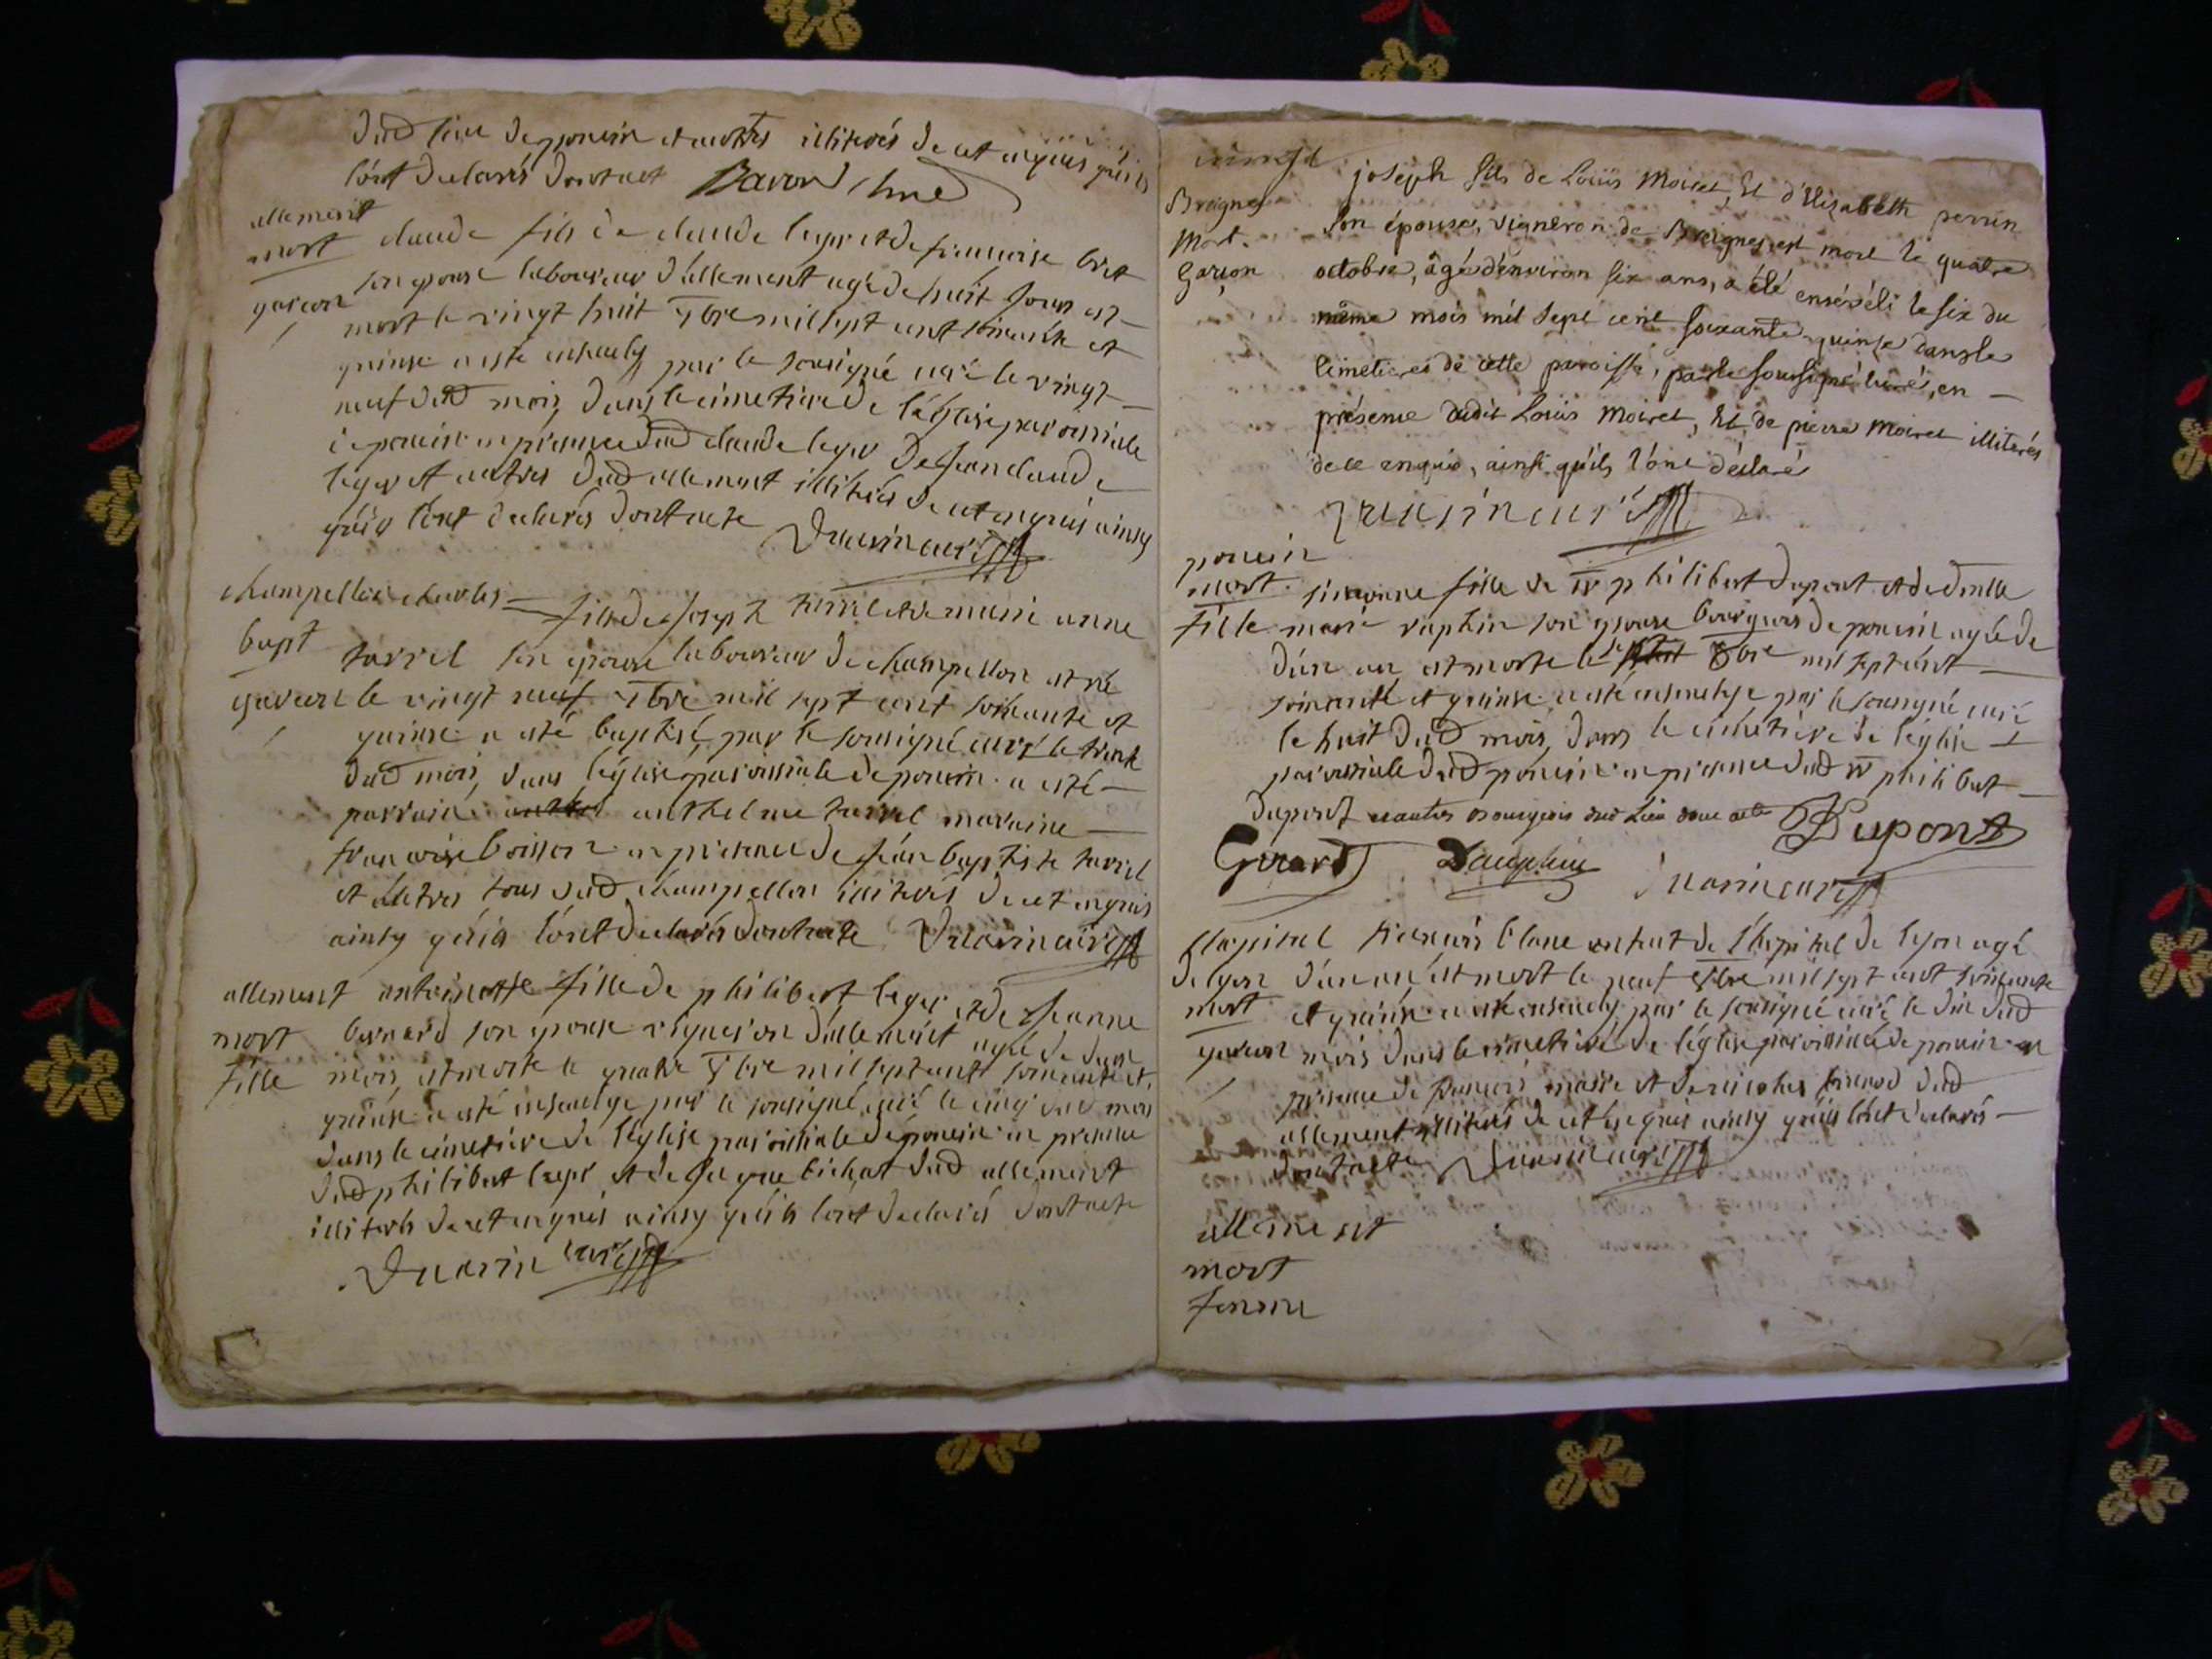 dud lieu de poncin et autres illiterés de ce enquis qu'ils
l'ont declarés dont acte
allement
mort
garcon
claude fils de claude leger et de francoise
son epouse laboureur d'allement agé de huit jours est
mort le vingt huit 7bre mil sept cent soixante et
quinse a esté ensevely par le sousigné curé le vingt
neuf dud mois, dans le cimetiere de l'église paroissiale
de poncin en presence dud claude leger de Jean claude
leger et autres dud allement illiterés de ce enquis ainsy
qu'ils l'ont declarés dont acte
champellon
bapt
garcon
charles fils de Joseph tarrel et de marie anne
tarrel son epouse laboureur de champellon est né
le vingt neuf 7bre mil sept cent soixante et
quinse a esté baptisé par le sousigné curé le trente
dud mois, dans l'église paroissiale de poncin a esté
parrain anthelme tarrel maraine
francoise boisson en presence de Jean baptiste tarrel
et autres tous dud champellon illiterés de ce enquis
ainsy qu'ils l'ont declarés dont acte
allement
mort
fille
antoinette fille de philibert leger et de Jeanne
bernard son epouse vigneron d'allement agée de
mois, est morte le quatre mil sept cent soixante et
quinse a esté ensevelye par le sousigné curé le cinq dud mois
dans le cimetiere de l'église paroissiale de poncin en presence
dud philibert leger et de Jacque bichat dud allement
illiterés de ce enquis ainsy qu'ils l'ont declarés dont acte
curé
Breignes
Mort.
Garçon
joseph fils de Loüis Moiret, Et d'Elizabeth perrin
son épouse, vigneron de Breignes, est mort le quatre
octobre, âgé d'environ six ans, a été ensévéli le six du
même mois mil sept cent soixante-quinse dans le
Cimetiere de cette paroisse, par le soussigné curé, en
présence dudit Loüis Moiret, Et de pierre Moiret illiterés
de ce enquis, ainsi qu'ils l'ont déclaré
poncin
mort
fille
fille de Sr philibert dupont et de dmlle
marie son epouse bourgeois de poncin agée de
d'un an est morte le 8bre mil sept cent
soixante et quinse a esté ensevelye par le sousigné curé
le huit dud mois, dans le cimetiere de l'église
paroissiale dud poncin en presence dud Sr philibert
dupont et autres Bourgeois dud Lieu dont acte Dupont
Girard Dauphin
l'hopital
de lyon
mort
garcon
francois blanc enfant de l'hopital de lyon agé
d'un an est mort le neuf 8bre mil sept cent soixante
et quinse a esté ensevely par le sousigné curé le dix dud
mois dans le cimetiere de l'église paroissiale de poncin en
presence de francois et de nicolas dud
allement illiterés de ce enquis ainsy qu'ils l'ont declarés
dont acte
allement
mort
femme